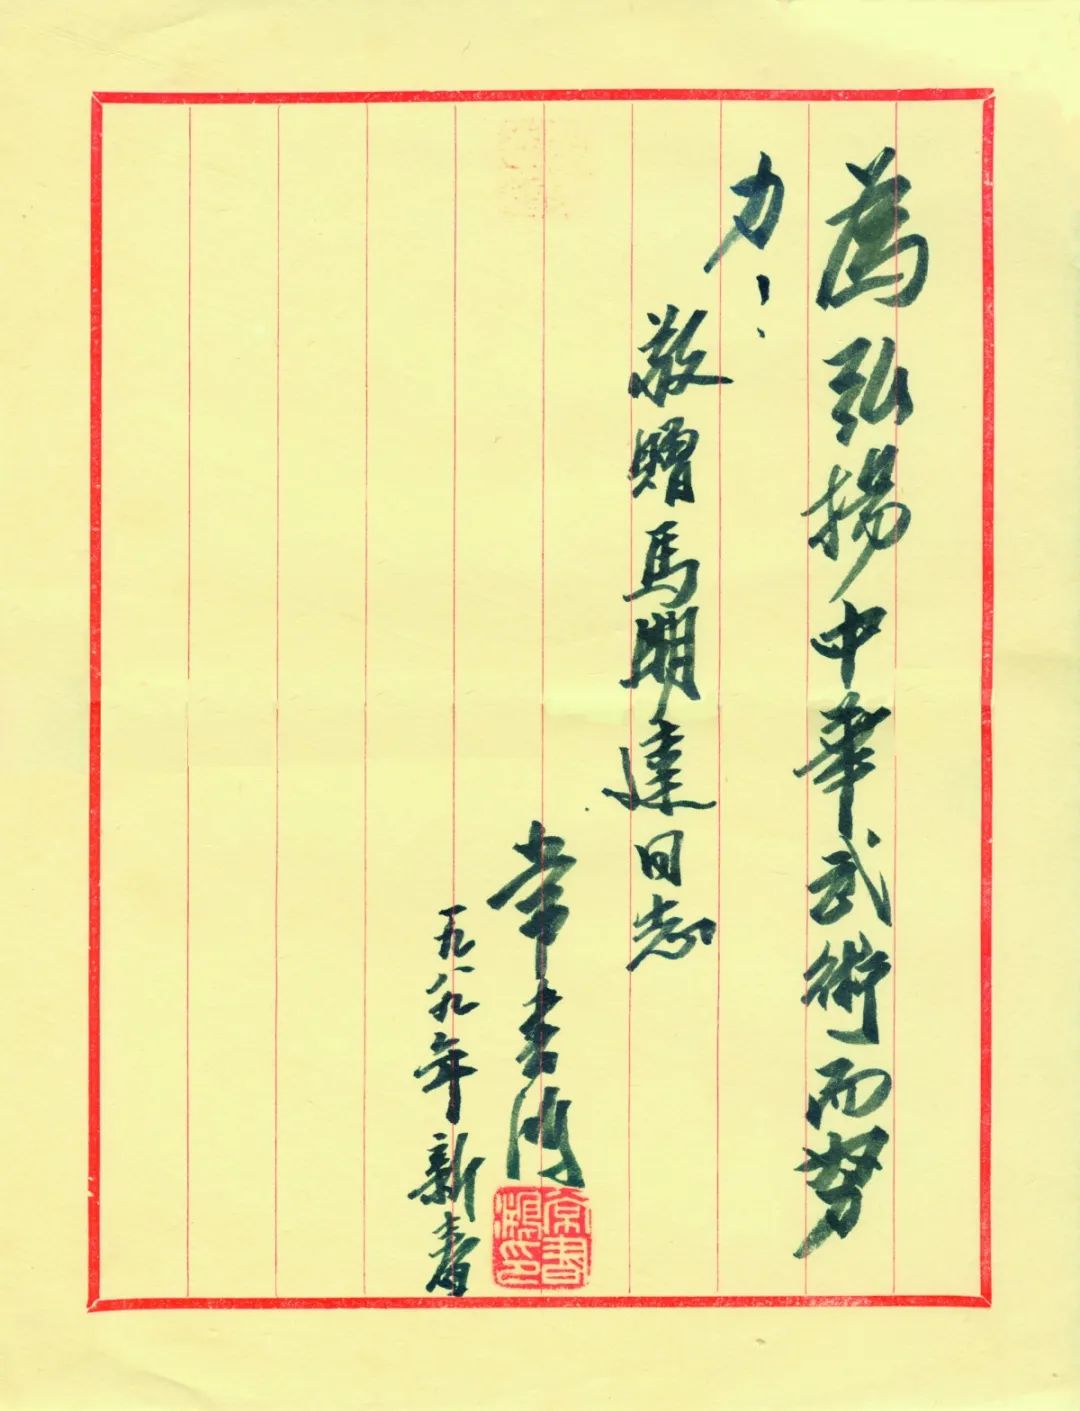 為弘揚中華武術而努
力！
敬贈馬明達同志
常書鴻
一九八九年新春
常書鴻印